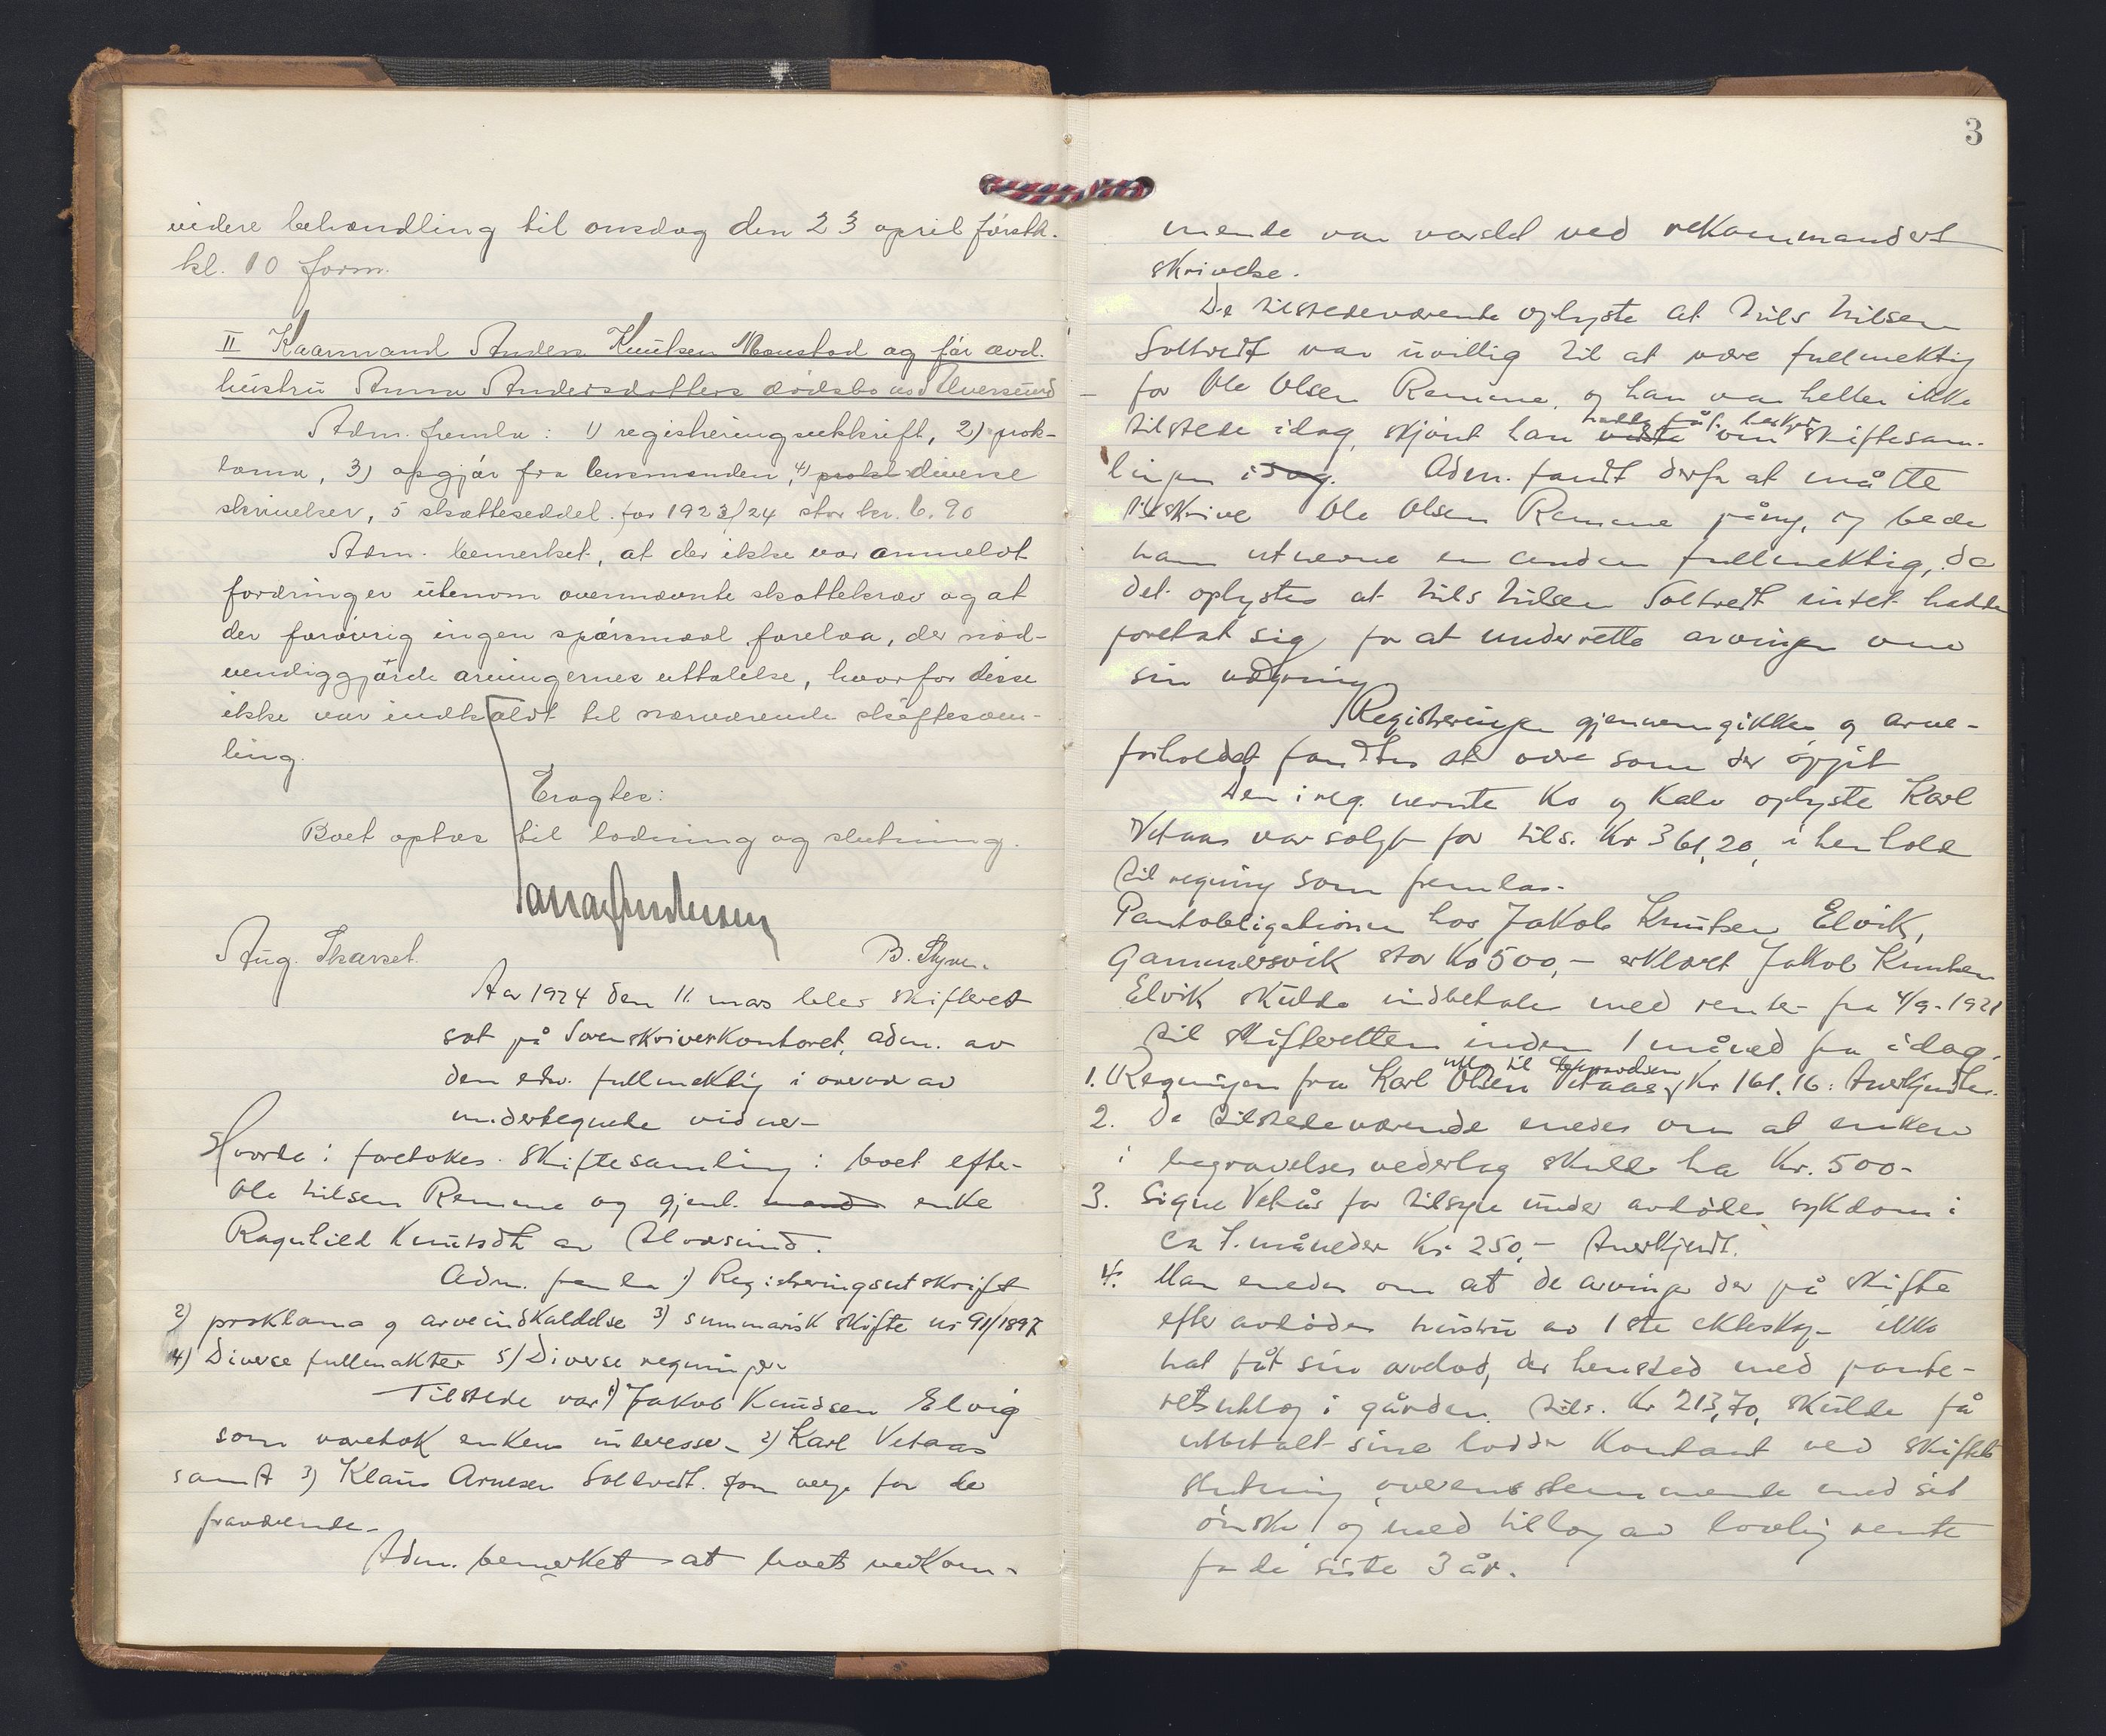 videre behandling til onsdag den 23 april förstk.
kl. 10 form.
II Kaarmand Anders Knutsen Monstad og för avd.
hustru Anna Andersdatters dødsbo
Adm. fremla: 1) registreringsutskrift, 2) prok-
lama, 3) opgjör fra lensmanden, 4) diverse
skrivelser, 5 skatteseddel for 1923/24 stor kr. 6.90
Adm. bemerket, at der ikke var anmeldt
fordringer utenom ovennævnte skattekrav og at
der forøvrig ingen spörsmaal forelaa, der nöd-
vendiggjörde arvingernes uttalelse, hvorfor disse
ikke var indkaldt til nærværende skiftesam-
ling.
Eragtes:
Boet optas til lodning og slutning.
Aug. Skarset. B. Styve.
Aar 1924 den 11. mars blev skifteret
sat på Sorenskriverkontoret, adm. av
den edsv. fullmektig i overvær av
undertegnede vidner
Hvorda: foretokes skiftesamling i boet efter
Ole Nilsen Remme og gjenl. mand enke
Ragnhild Knutsdtr av Alversund.
Adm. fremla 1) Registreringsutskrift
2) proklama og arveindkaldelse 3) summarisk skifte nr 91/1897
4) Diverse fullmakter 5) Diverse regninger
Tilstede var 1) Jakob Knudsen Elvig
som varetok enkens interesser 2) Karl Vetaas
samt 3) Klaus Arnesen Soltvedt. som verge for de
fraværende.
Adm. bemerket at boets vedkom-
3
mende var varslet ved rekommandert
skrivelse.
De tilstedeværende oplyste at Nils Nilsen
Soltvedt var uvillig til at være fullmektig
for Ole Olsen Remme, og han var heller ikke
hadde fåt beskjed
tilstede idag, skjönt han vidste om skiftesam-
lingen idag. Adm. fandt derfor at måtte
tilskrive Ole Olsen Remme påny, og bede
ham utnevne en anden fullmektig, da
det oplystes at Nils Nilsen Soltvedt intet hadde
foretat sig for at underrette arvingen om
sin vægring
Registreringen gjennemgikkes og arve-
forholdet fandtes at være som der opgit
Den i reg. nevnte ko og kalv oplyste Karl
Vetaas var solgt for tils. Kr 361,20, i henhold
til regning som fremlas.
Pantobligationen hos Jakob Knutsen Elvik,
Gammersvik stor Kr 500,- erklært Jakob Knutsen
Elvik skulde indbetales med renter fra 4/9-1921
til skifteretten inden 1 måned fra idag.
utl. til begravelsen
1. Regningen fra Karl Olsen Vetaas, Kr 161.16: Anerkjendtes.
2. De tilstedeværende enedes om at enken
i begravelsesvederlag skulle ha Kr. 500-
3. Signe Vetås for tilsyn under avdödes sykdom i
ca 7. måneder Kr 250,- Anerkjendt.
4. Man enedes om at de arvinger der på skifte
efter avdödes hustru av 1ste ekteskap ikke
hat fåt sin arvelod, der henstod med pante-
retsutlæg i gården. tils. Kr 213,70, skulde få
utbetalt sine lodder kontant ved skiftets
slutning overensstemmende med sit
önske, og med tillæg av lovlig rente
for de siste 3 år.